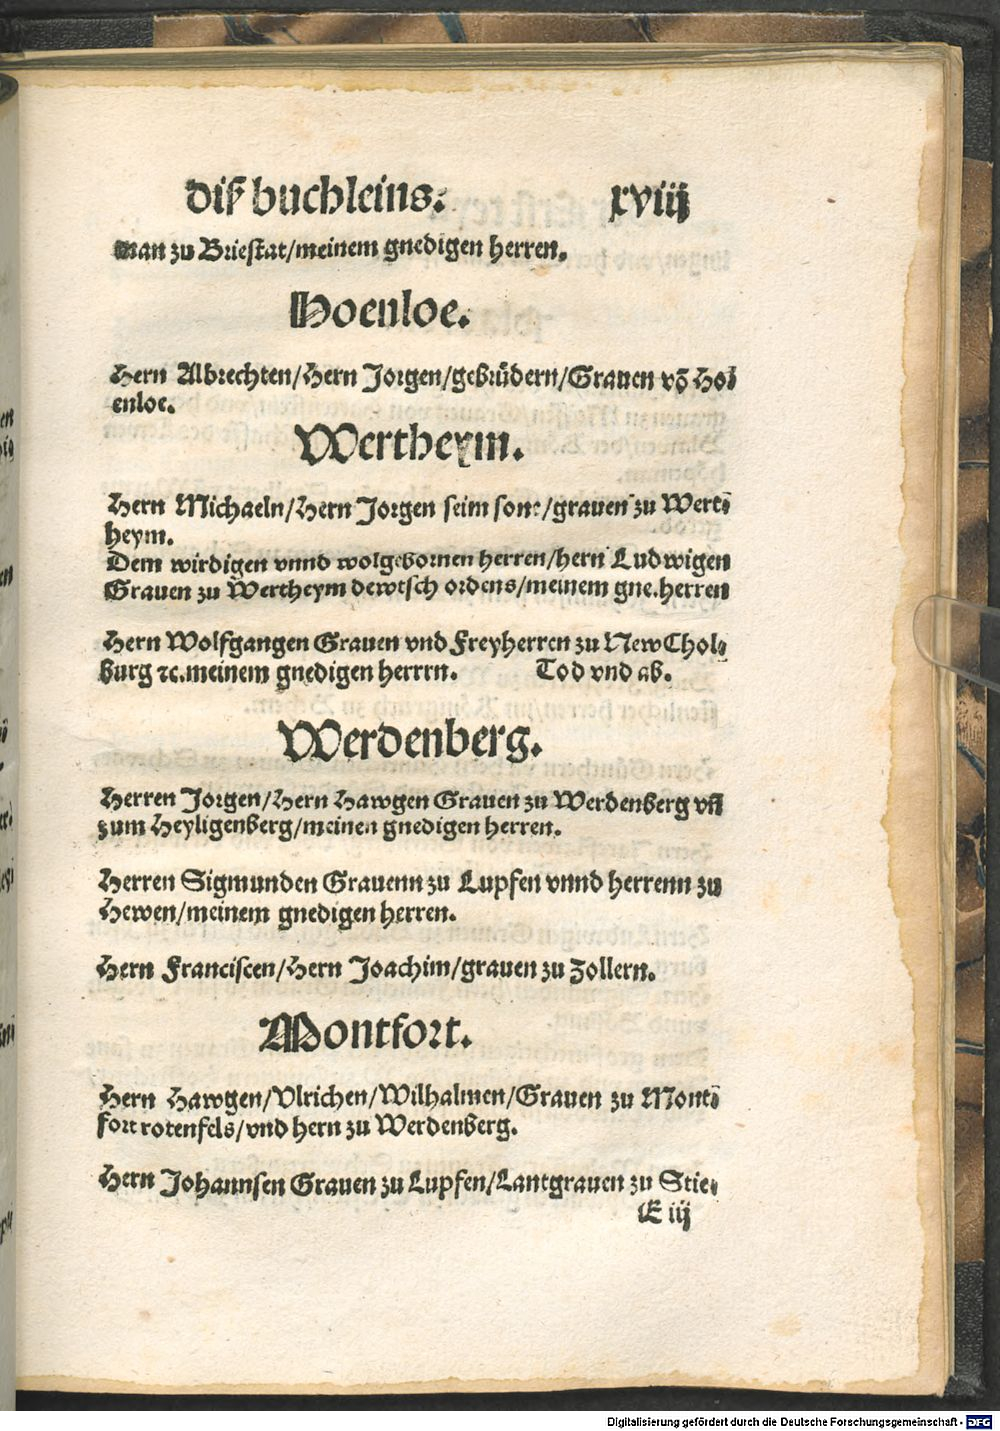 diß buchleins. xviij
man zu Briestat/meinem gnedigen herren.
Hoenloe.
Hern Albrechten/Hern Jorgen/gebrüdern/Grauen võ Ho⸗
enloe.
Wertheym.
Hern Michaeln/Hern Jorgen seim sone/grauen zu Wert⸗
heym.
Dem wirdigen vnnd wolgebornen herren/hern Ludwigen
Grauen zu Wertheym dewtsch ordens/meinem gne.herren
Hern Wolfgangen Grauen vnd Freyherren zu NewChol⸗
burg ꝛc.meinem gnedigen herrrn. Tod vnd ab.
Werdenberg.
Herren Jorgen/Hern Hawgen Grauen zu Werdenberg vñ
zum Heyligenberg/meinen gnedigen herren.
Herren Sigmunden Grauenn zu Lupfen vnnd herrenn zu
Hewen/meinem gnedigen herren.
Hern Franciscen/Hern Joachim/grauen zu Zollern.
Montfort.
Hern Hawgen/Vlrichen/Wilhalmen/Grauen zu Mont⸗
fort rotenfels/vnd hern zu Werdenberg.
Hern Johannsen Grauen zu Lupfen/Lantgrauen zu Stie⸗
E iij
Digitalisierung gefördert durch die Deutsche Forschungsgemeinschaft - DFG